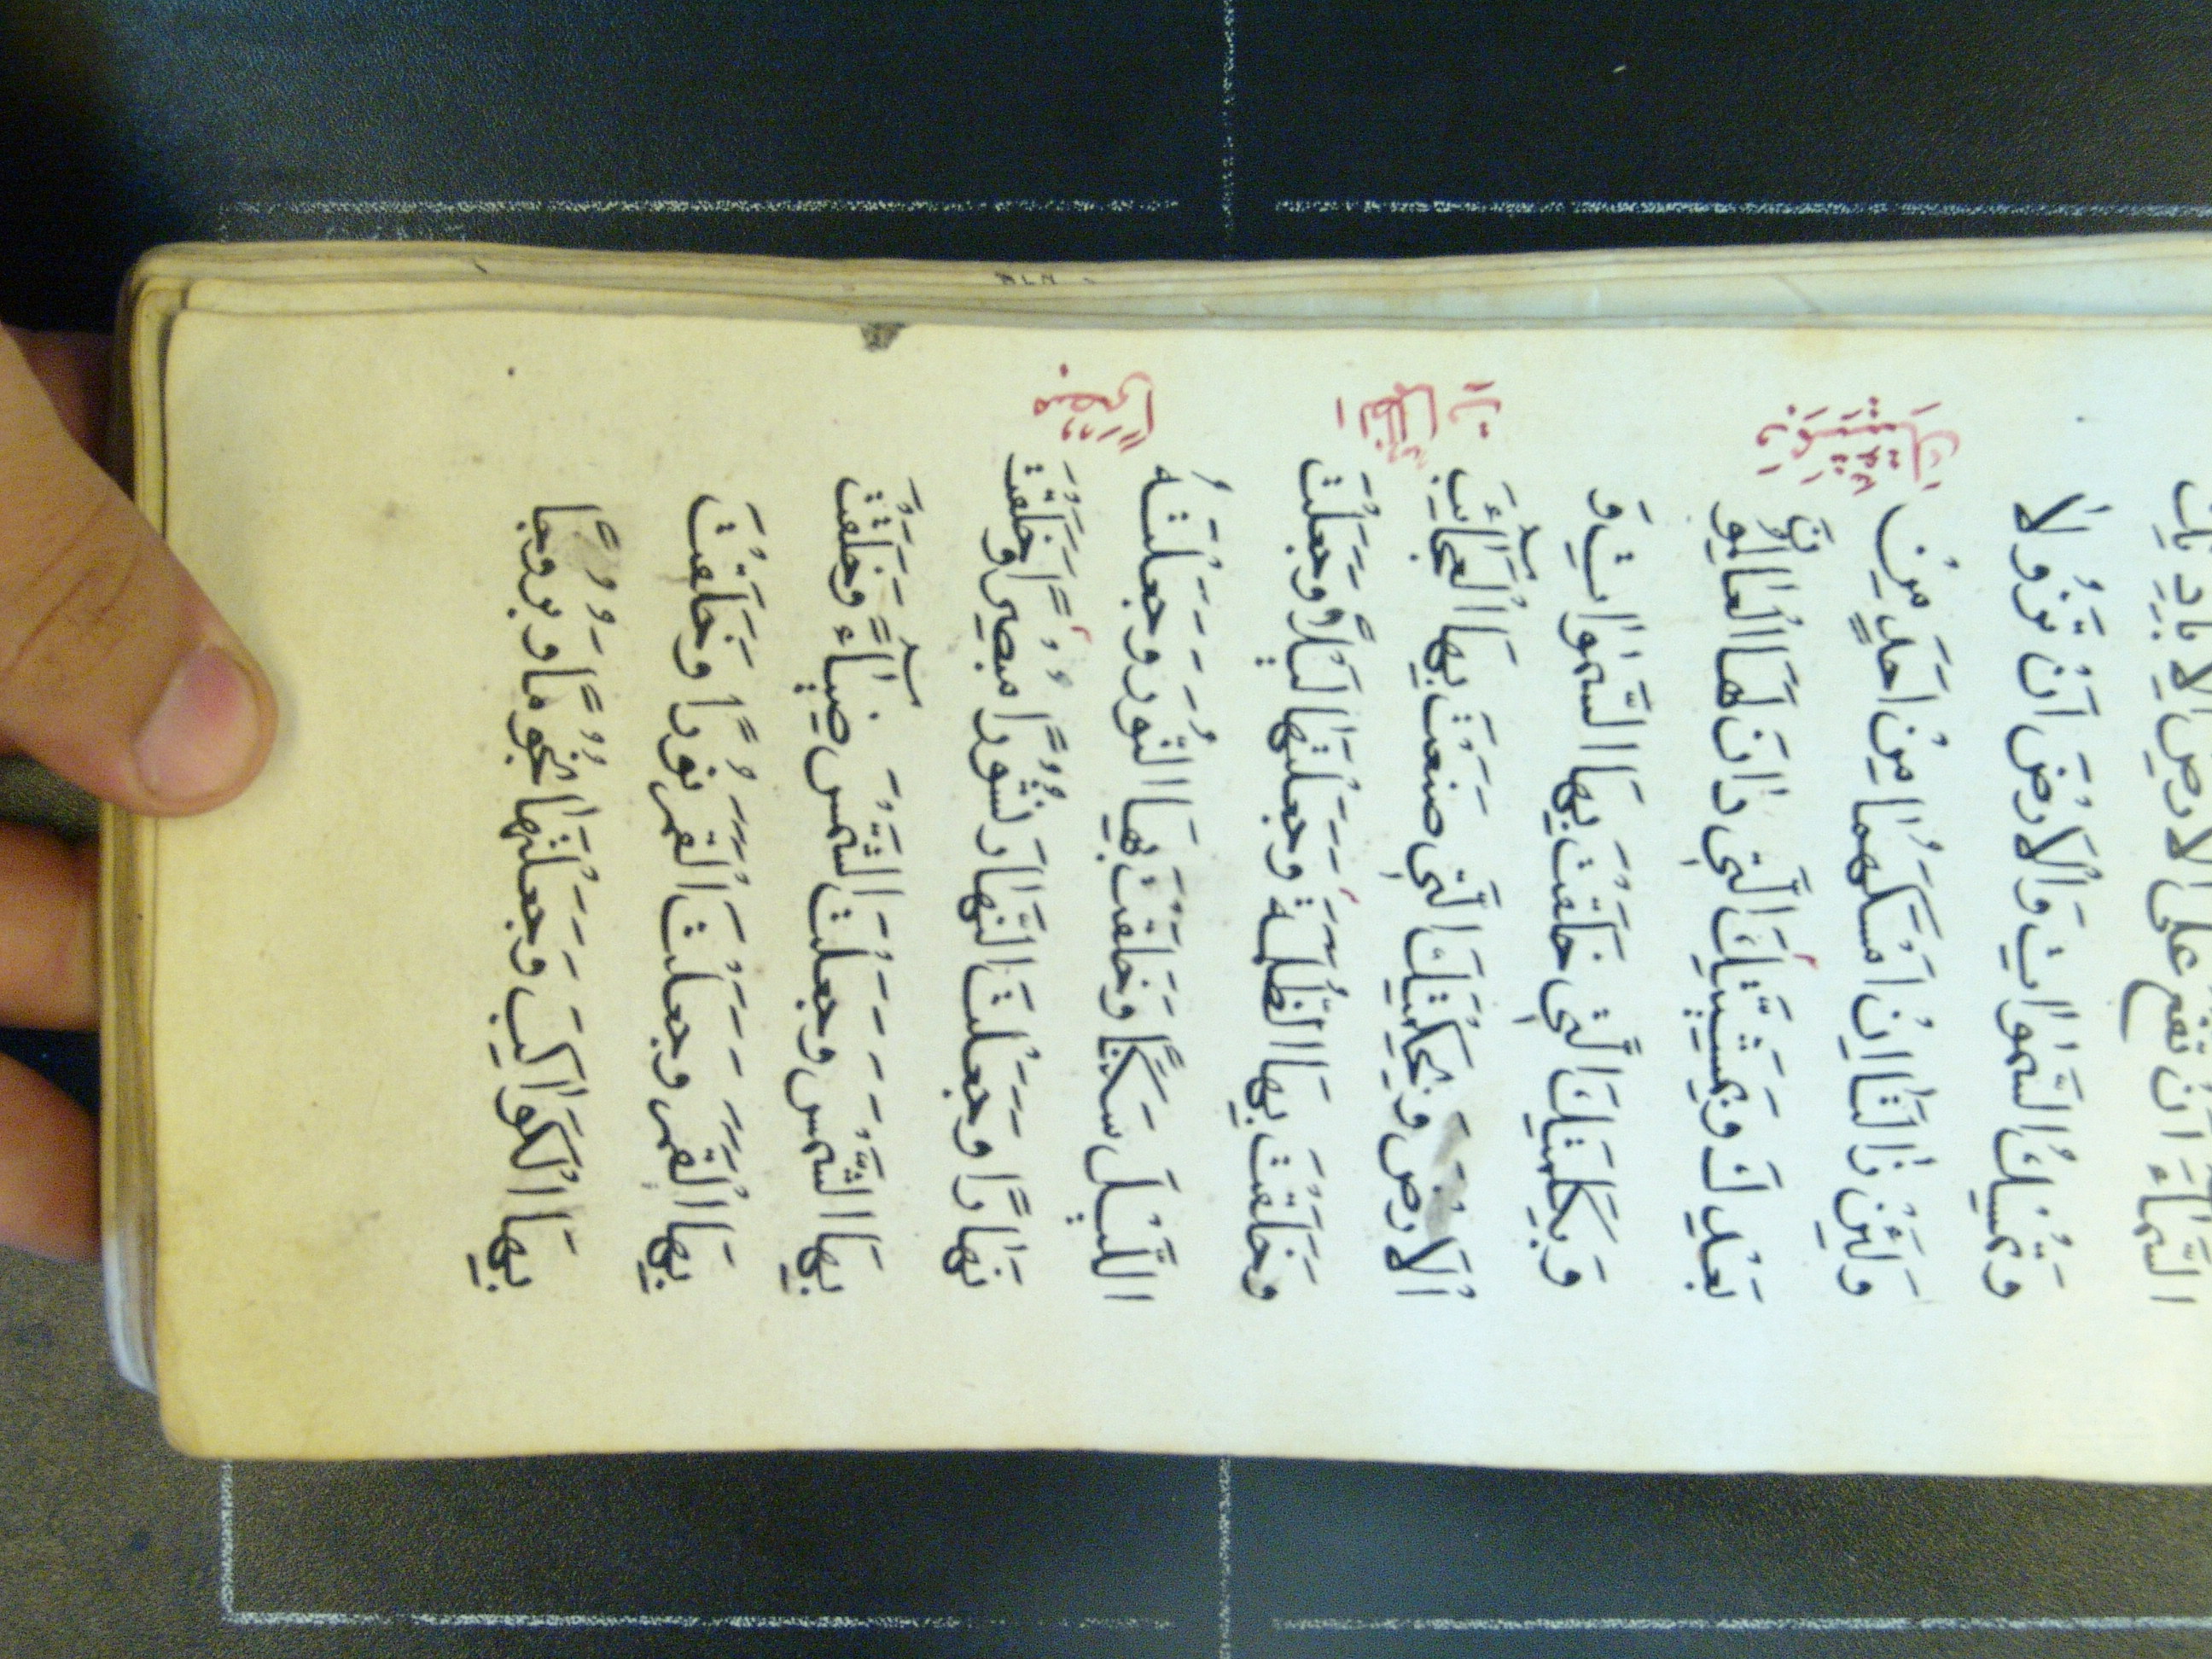 السَّمَاءَ اَنْ تَقَعَ عَلَى الْاَرْضِ اِلَّا بِاِذْنِكَ
وَتُمْسِكُ السَّمٰوَاتِ وَالْاَرْضَ اَنْ تَزُولَا
وَلَئِنْ زَالَتَا اِنْ اَمْسَكَهُمَا مِنْ اَحَدٍ مِنْ
بَعْدِكَ وَبِمَشِيَّتِكَ الَّتِى دَانَ لَهَا الْعَالَمُونَ
وَبِكَلِمَتِكَ الَّتِى خَلَقْتَ بِهَا السَّمٰوَاتِ وَ
الْاَرْضَ وَبِحِكْمَتِكَ الَّتِى صَنَعْتَ بِهَا الْعَجَائِبَ
وَخَلَقْتَ بِهَا الظُّلْمَةَ وَجَعَلْتَهَا لَيْلًا وَجَعَلْتَ
اللَّيْلَ سَكَنًا وَخَلَقْتَ بِهَا النُّورَ وَجَعَلْتَهُ
نَهَارًا وَجَعَلْتَ النَّهَارَ نُشُورًا مُبْصِرًا وَخَلَقْتَ
بِهَا الشَّمْسَ وَجَعَلْتَ الشَّمْسَ ضِيَاءً وَخَلَقْتَ
بِهَا الْقَمَرَ وَجَعَلْتَ الْقَمَرَ نُورًا وَخَلَقْتَ
بِهَا الْكَوَاكِبَ وَجَعَلْتَهَا نُجُومًا وَبُرُوجًا